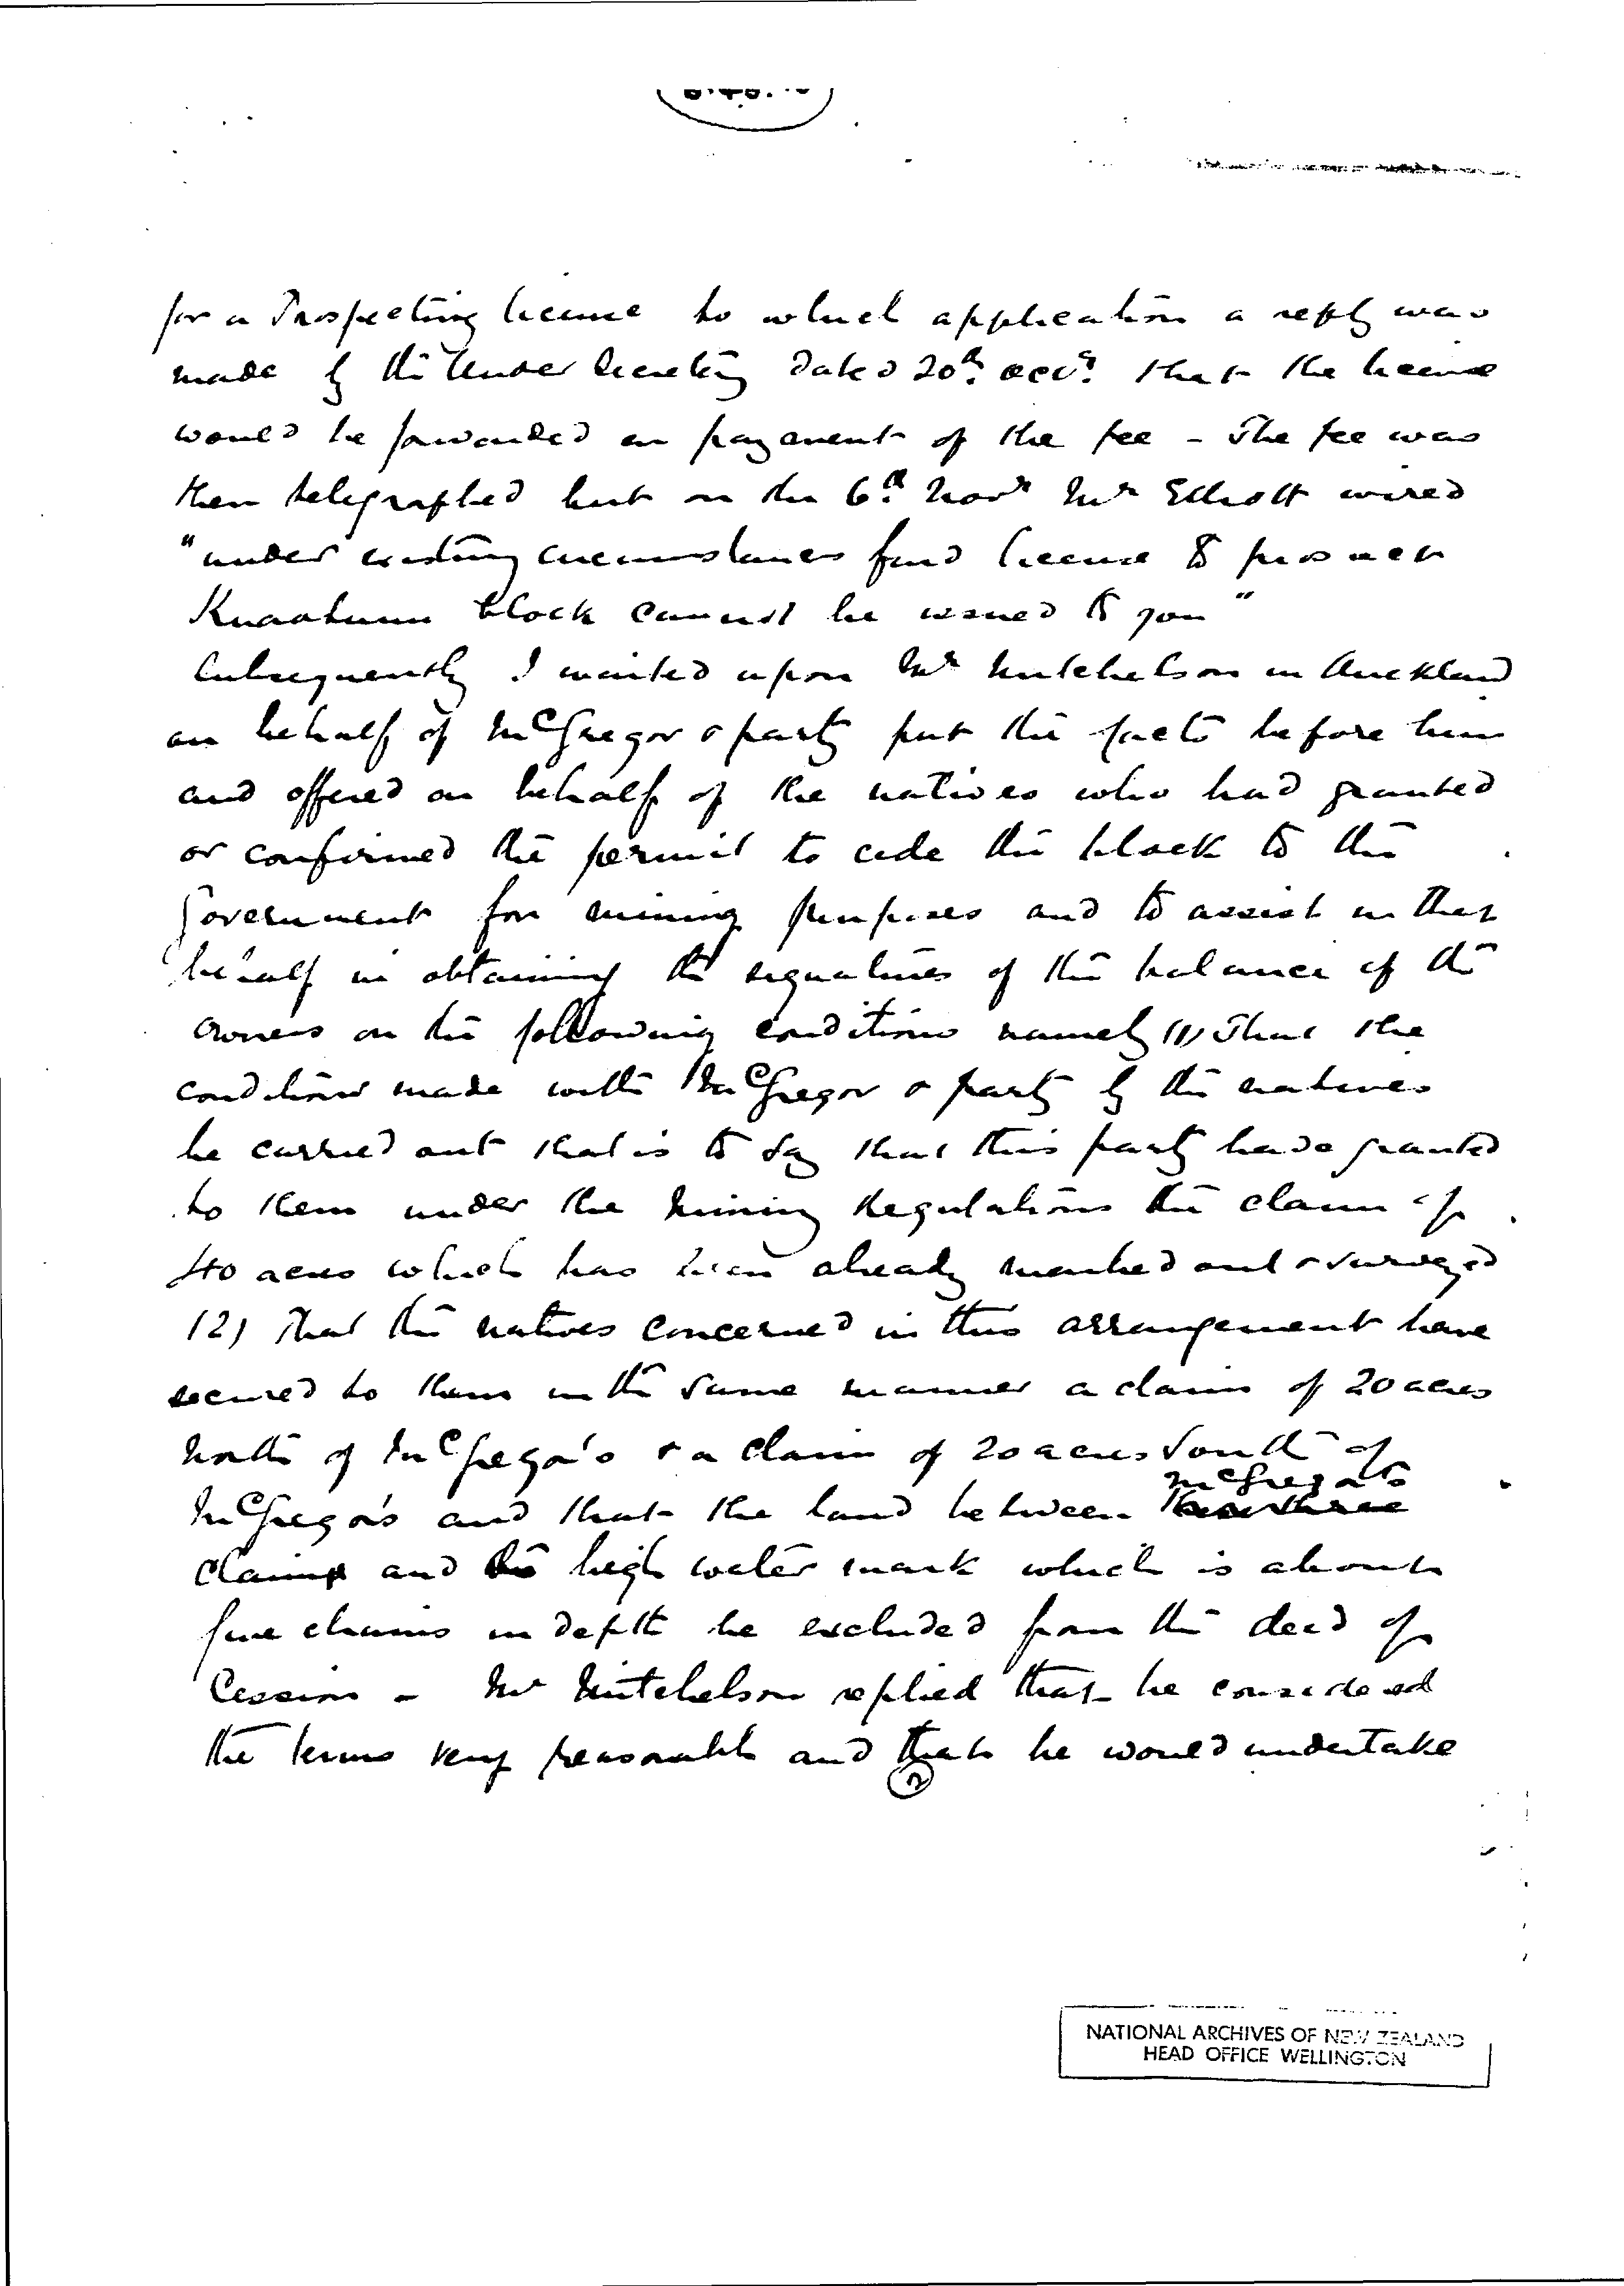 for a Prospecting license to which application a reply was
made by the Under Secretary dated 20th Octr. that the license
would be forwarded on payment of the fee - The fee was
then telegraphed but on the 6th Novr Mr Elliott wired
"under existing circumstances find license to prospect
block cannot be issued to you"
Subsequently I waited upon Mr Mitchelson in Auckland
on behalf of McGregor & party put the facts before him
and offered on behalf of the natives who had granted
or confirmed the permit to cede the block to the
Government for mining purposes and to assist in that
behalf in obtaining the signatures of the balance of the
owners on the following conditions namely (1) That the
conditions made with McGregor & party by the natives
be carried out that is to say that this party have granted
to them under the Mining Regulations the claim of
40 acres which has been already marked out & surveyed
(2) That the natives concerned in this arrangement have
secured to them in the same manner a claim of 20 acres
North of McGregor's & a claim of 20 acres South of
McGregor's
McGregor's and that the land between
claim and the high water mark which is about
five chains in depth be excluded from the deed of
Cession - Mr Mitchelson replied that he considered
the terms very reasonable and that he would undertake
2
NATIONAL ARCHIVES OF NEW ZEALAND
HEAD OFFICE WELLINGTON